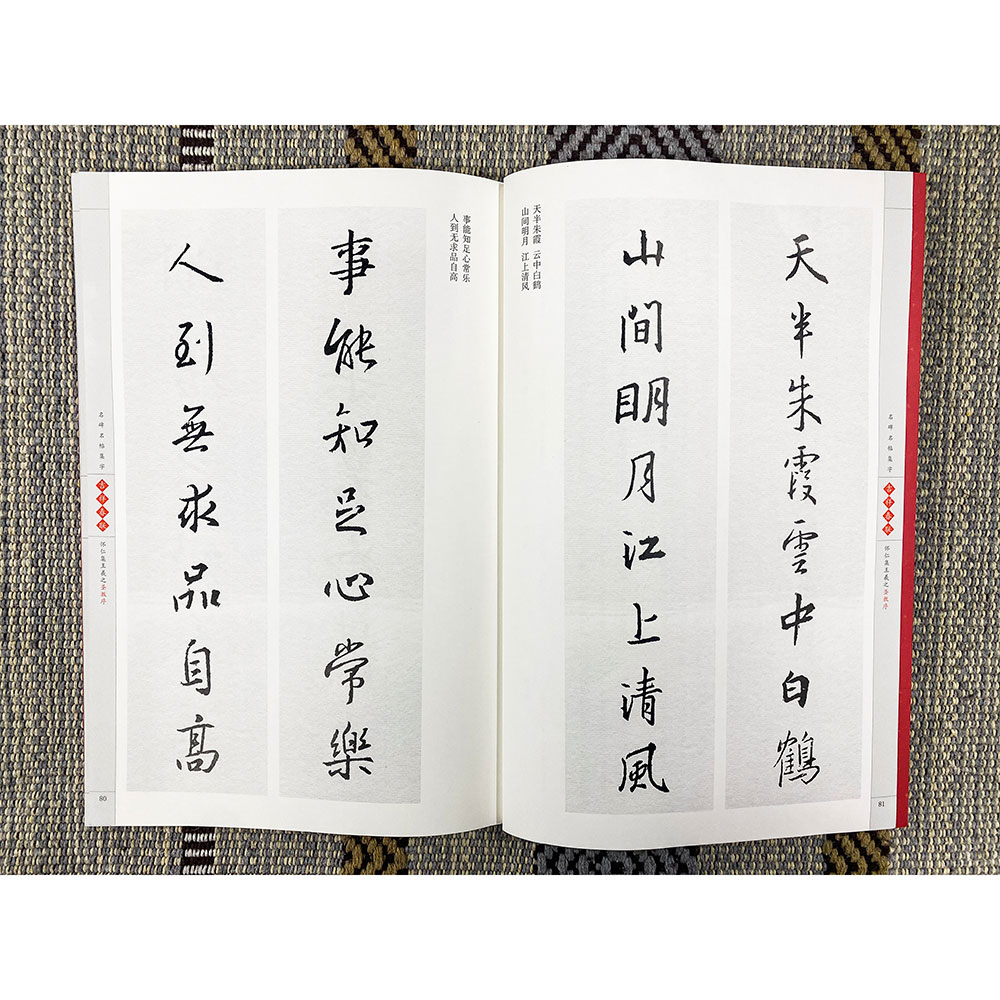 事能知足心常樂
人到無求品自高
事能知足心常乐
人到无求品自高
名碑名帖集字
吉祥春联
怀仁集王羲之圣教序
80
天半朱霞雲中白鶴
山間明月江上清風
天半朱霞 云中白鹤
山间明月 江上清风
名碑名帖集字
吉祥春联
怀仁集王羲之圣教序
81